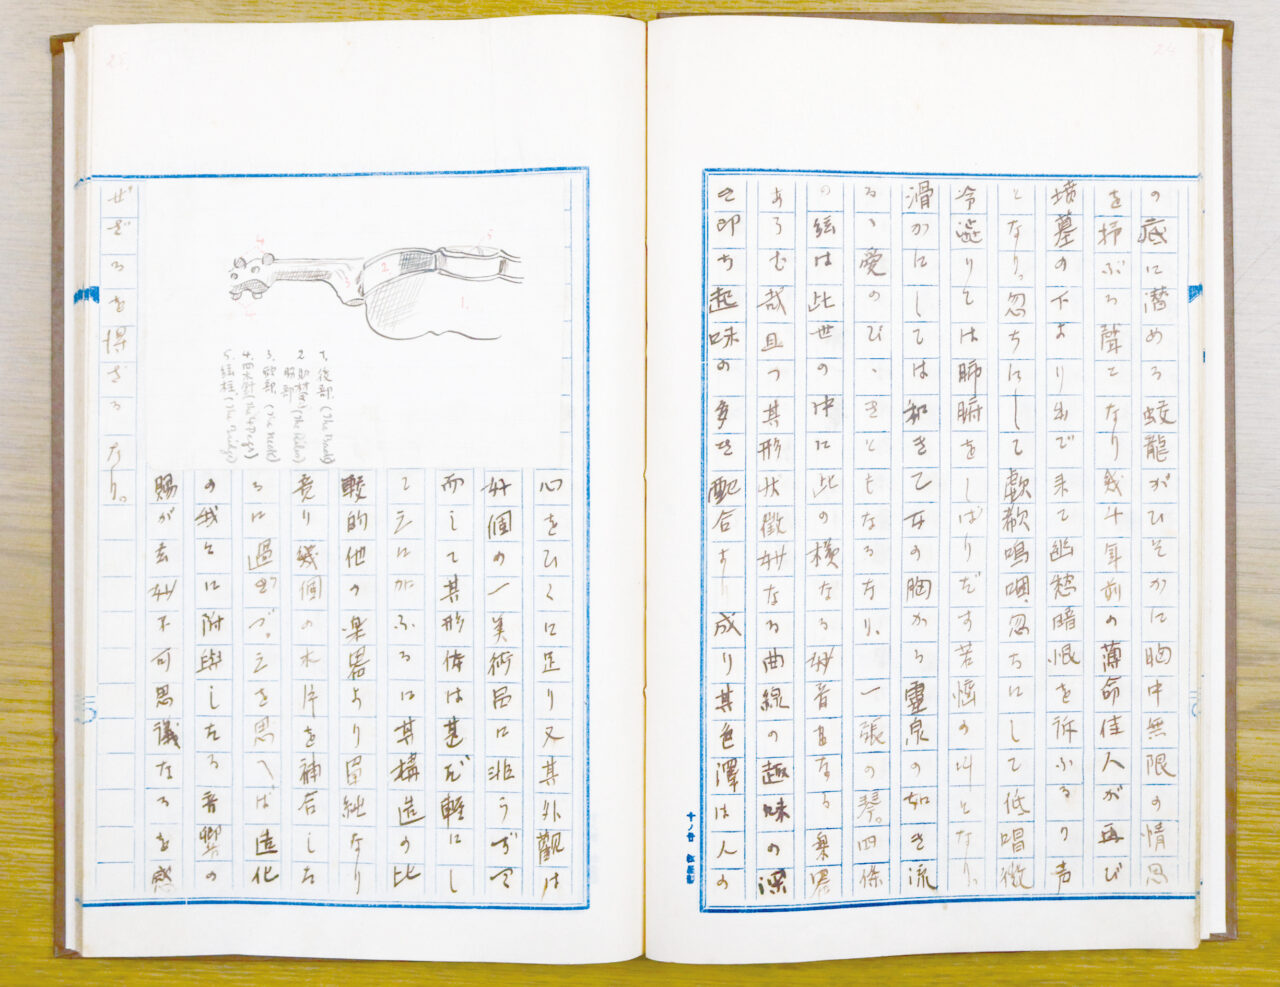 24
の底に潜める蛟龍がひそかに胸中無限の情思
を抒ぶる聲てなり幾千年前の薄命佳人が再び
墳墓の下より出で来て幽愁暗恨を訴ふるの声
となり。忽ちにして歔欷鳴咽、忽ちにして低唱微
冷澁りては肺腑をしぼりだす苦悩の叫となり。
滑かにしては和き乙女の胸かる靈泉の如き流
るゝ愛のひゞきともなるなり、一張の琴。四條
の絃は此世の中に此の様なる妙音まなる楽器
あらむ哉且つ其形状微妙なる曲線の趣味の深
き即ち起味の多き配合より成り其色澤は人の
25
1. 後部 (The Back)
2. 肋材 (The Ribs)
脇部
3. 頸部 (The Neck)
4. 四木針 (The 4 Pegs)
5. 絃柱 (The Bridge)
心をひくに足り又其外觀は
好個の一美術品に非らずや
而して其形体は甚だ軽にし
て之にがふるに其構造の比
較的他の楽器より単純なり
竟り幾個の木片を補合した
るに過ぎず。之を思へば造化
の我々に附與したる音響の
賜が玄妙不可思議なるを感
ぜざるを得ざるなり。
十ノ廿 松屋製